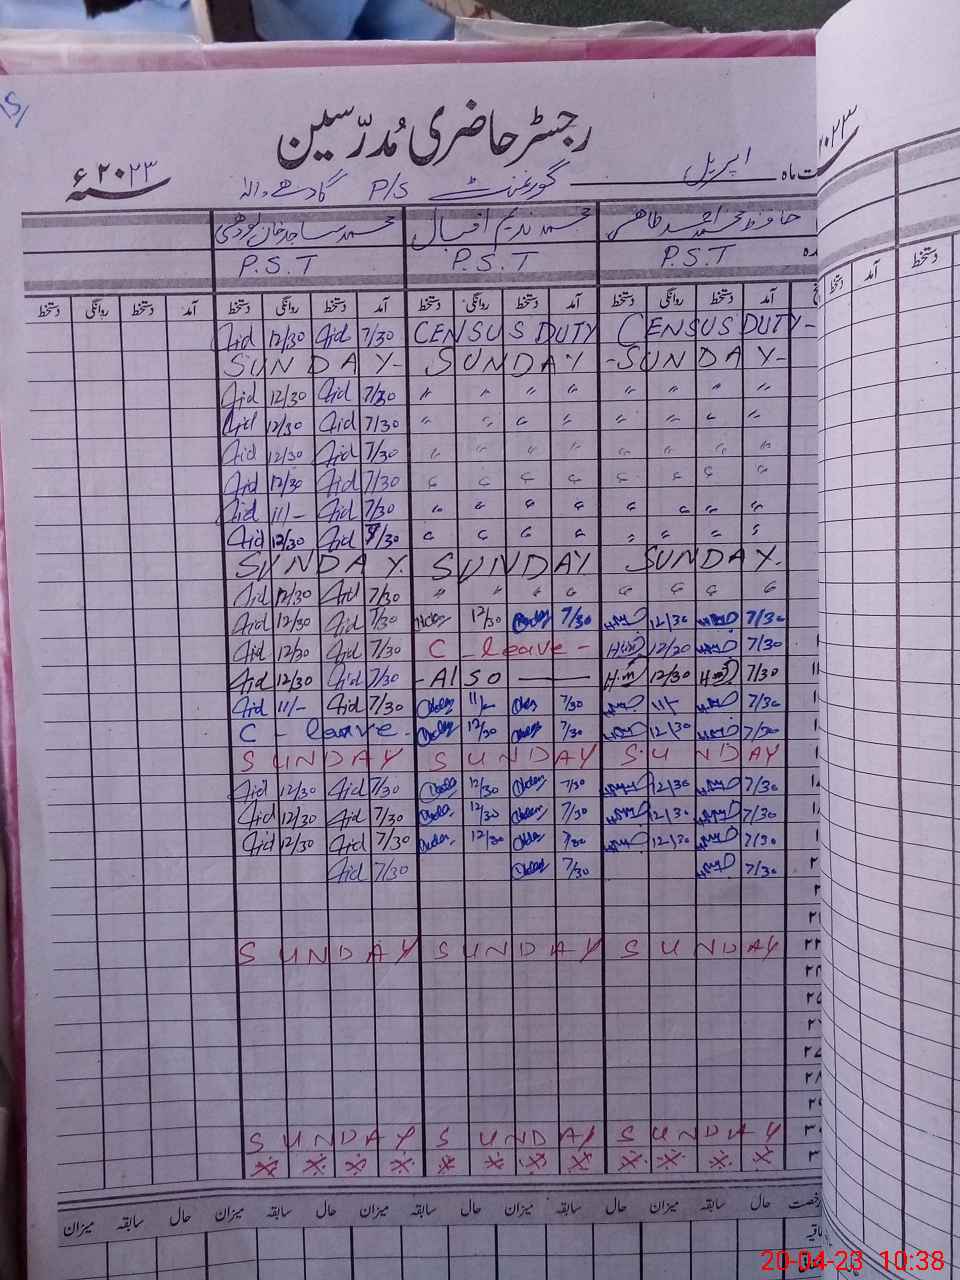 رجسٹر حاضری مُدرّسین
اپریل ماہ گورنمنٹ P/S گادھے والا سنہ ۲۰۲۳ء
حافظ محمد احمد طاہر محمد ندیم اقبال محمد ساجد خان لودھی
P.S.T P.S.T P.S.T
آمد دستخط روانگی دستخط آمد دستخط روانگی دستخط آمد دستخط روانگی دستخط آمد دستخط روانگی دستخط
12/30 7/30 CENSUS DUTY CENSUS DUTY-
SUNDAY- SUNDAY -SUNDAY-
12/30 7/30 〃 〃 〃 〃 〃 〃 〃 〃
12/30 7/30 〃 〃 〃 〃 〃 〃 〃 〃
12/30 7/30 〃 〃 〃 〃 〃 〃 〃 〃
12/30 7/30 〃 〃 〃 〃 〃 〃 〃 〃
11/- 7/30 〃 〃 〃 〃 〃 〃 〃 〃
12/30 7/30 〃 〃 〃 〃 〃 〃 〃 〃
SUNDAY. SUNDAY SUNDAY.
12/30 7/30 〃 〃 〃 〃 〃 〃 〃 〃
12/30 7/30 12/30 7/30 12/30 7/30
12/30 7/30 C - leave - 12/20 7/30
12/30 7/30 - Also — 12/30 7/30
11/- 7/30 11/- 7/30 11/- 7/30
C - leave - 12/30 7/30 12/30 7/30
SUNDAY SUNDAY SUNDAY
12/30 7/30 12/30 7/30 12/30 7/30
12/30 7/30 12/30 7/30 12/30 7/30
12/30 7/30 12/30 7/30 12/30 7/30
7/30 7/30 7/30
SUNDAY SUNDAY SUNDAY ۲۳
SUNDAY SUNDAY SUNDAY ۳۰
حال سابقہ میزان حال سابقہ میزان حال سابقہ میزان حال سابقہ میزان
20-04-23 10:38